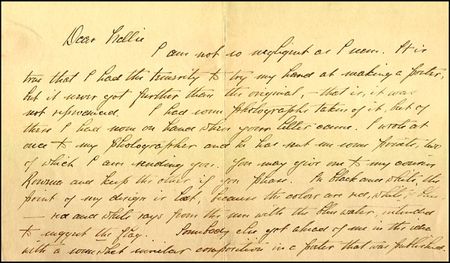 Dear Nellie
I am not so negligent as I seem. It is
true that I had the temerity to try my hand at making a poster,
but it never got further than the original, – that is, it was
not reproduced. I had some photographs taken of it, but of
these I had none on hand when your letter came. I wrote at
once to my photographer and he has sent me some prints, two
of which I am sending you. You may give one to my cousin
Rowena and keep the other if you please. In black and white the
point of my design is lost, because the colors are red, white, blue
— red and white rays from the sun with the blue water, intended
to suggest the flag. Somebody else got ahead of me in the idea
with a somewhat similar composition in a poster that was published.